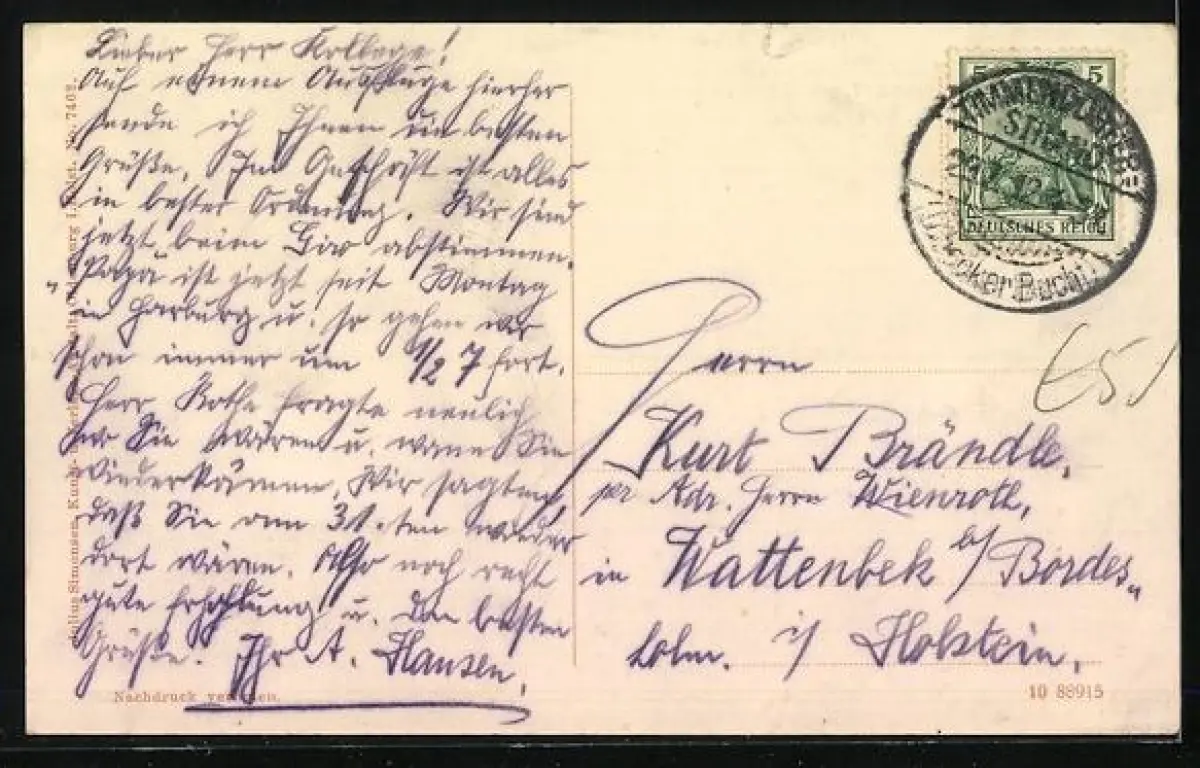 Lieber Herr Kollege!
Auf einem Ausfluge hierher
sende ich Ihnen die besten
Grüße. Im Geschäft ist alles
in bester Ordnung. Wir sind
jetzt beim abstimmen.
"Papa" ist jetzt seit Montag
in Harburg u. so gehen wir
schon immer um 1/2 7 fort.
Herr Rothe fragte neulich
wo Sie wären u. wann Sie
wiederkämen. Wir sagten,
daß Sie am 31.ten wieder
dort wären. Also noch recht
gute Erholung u. die besten
Grüße. Ihr A. Hansen.
Nachdruck verboten.
Julius Simonsen, Kunstverlagsanstalt, Oldenburg i. Holst. No. 7402.
5 5
DEUTSCHES REICH
TIMMENDORFER
STRAND
12
(Lübecker Bucht)
€5,
Herrn
Kurt Brändle,
pr Adr. Herrn Wienroth,
in Wattenbek b/ Bordes-
holm. i/ Holstein.
10 88915